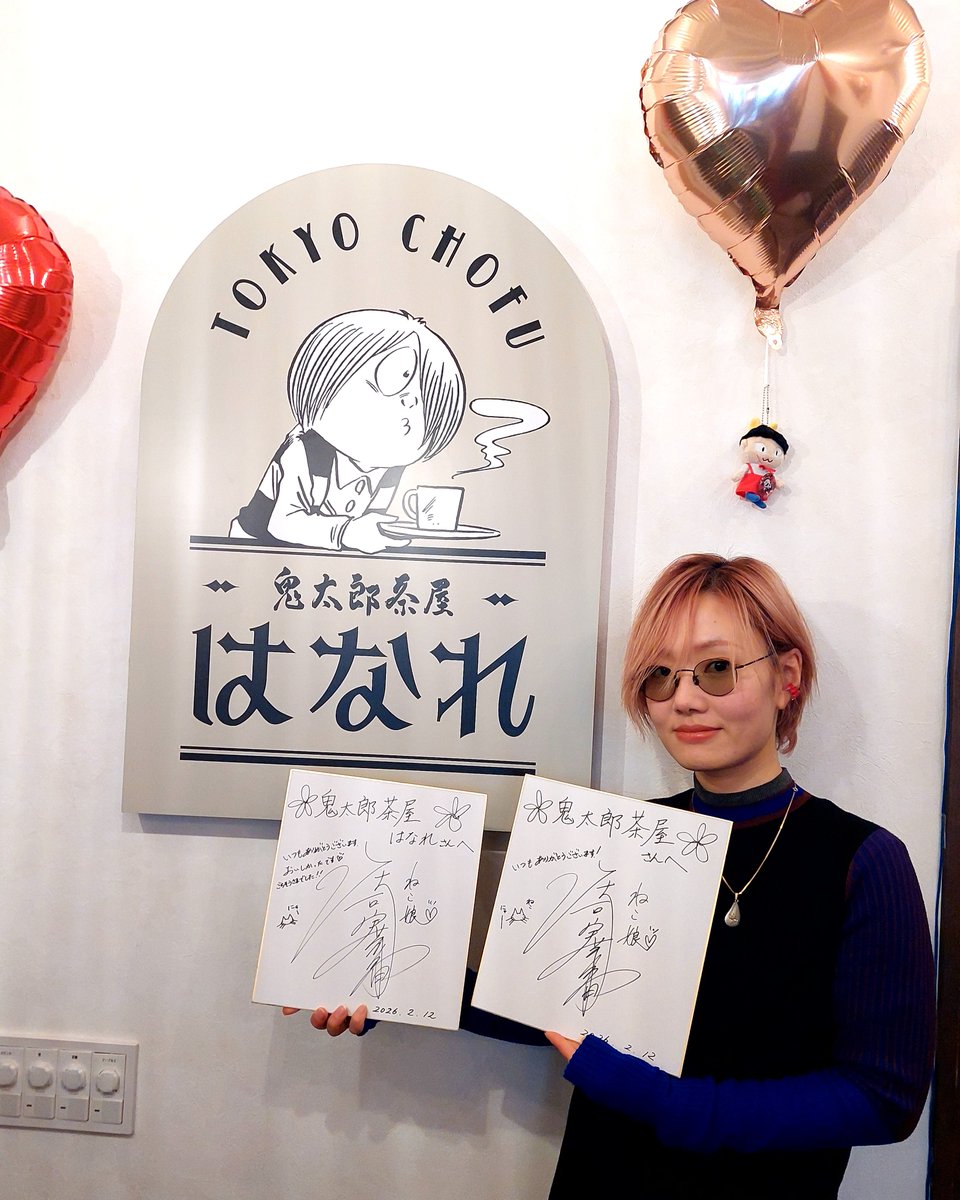 TOKYO CHOFU
鬼太郎茶屋
はなれ
鬼太郎茶屋
はなれさんへ
いつもありがとうございます
おいしかったです
ごちそうさまでした!!
ねこ娘
2026.2.12
鬼太郎茶屋
さんへ
いつもありがとうございます!
ねこ娘
2026.2.12